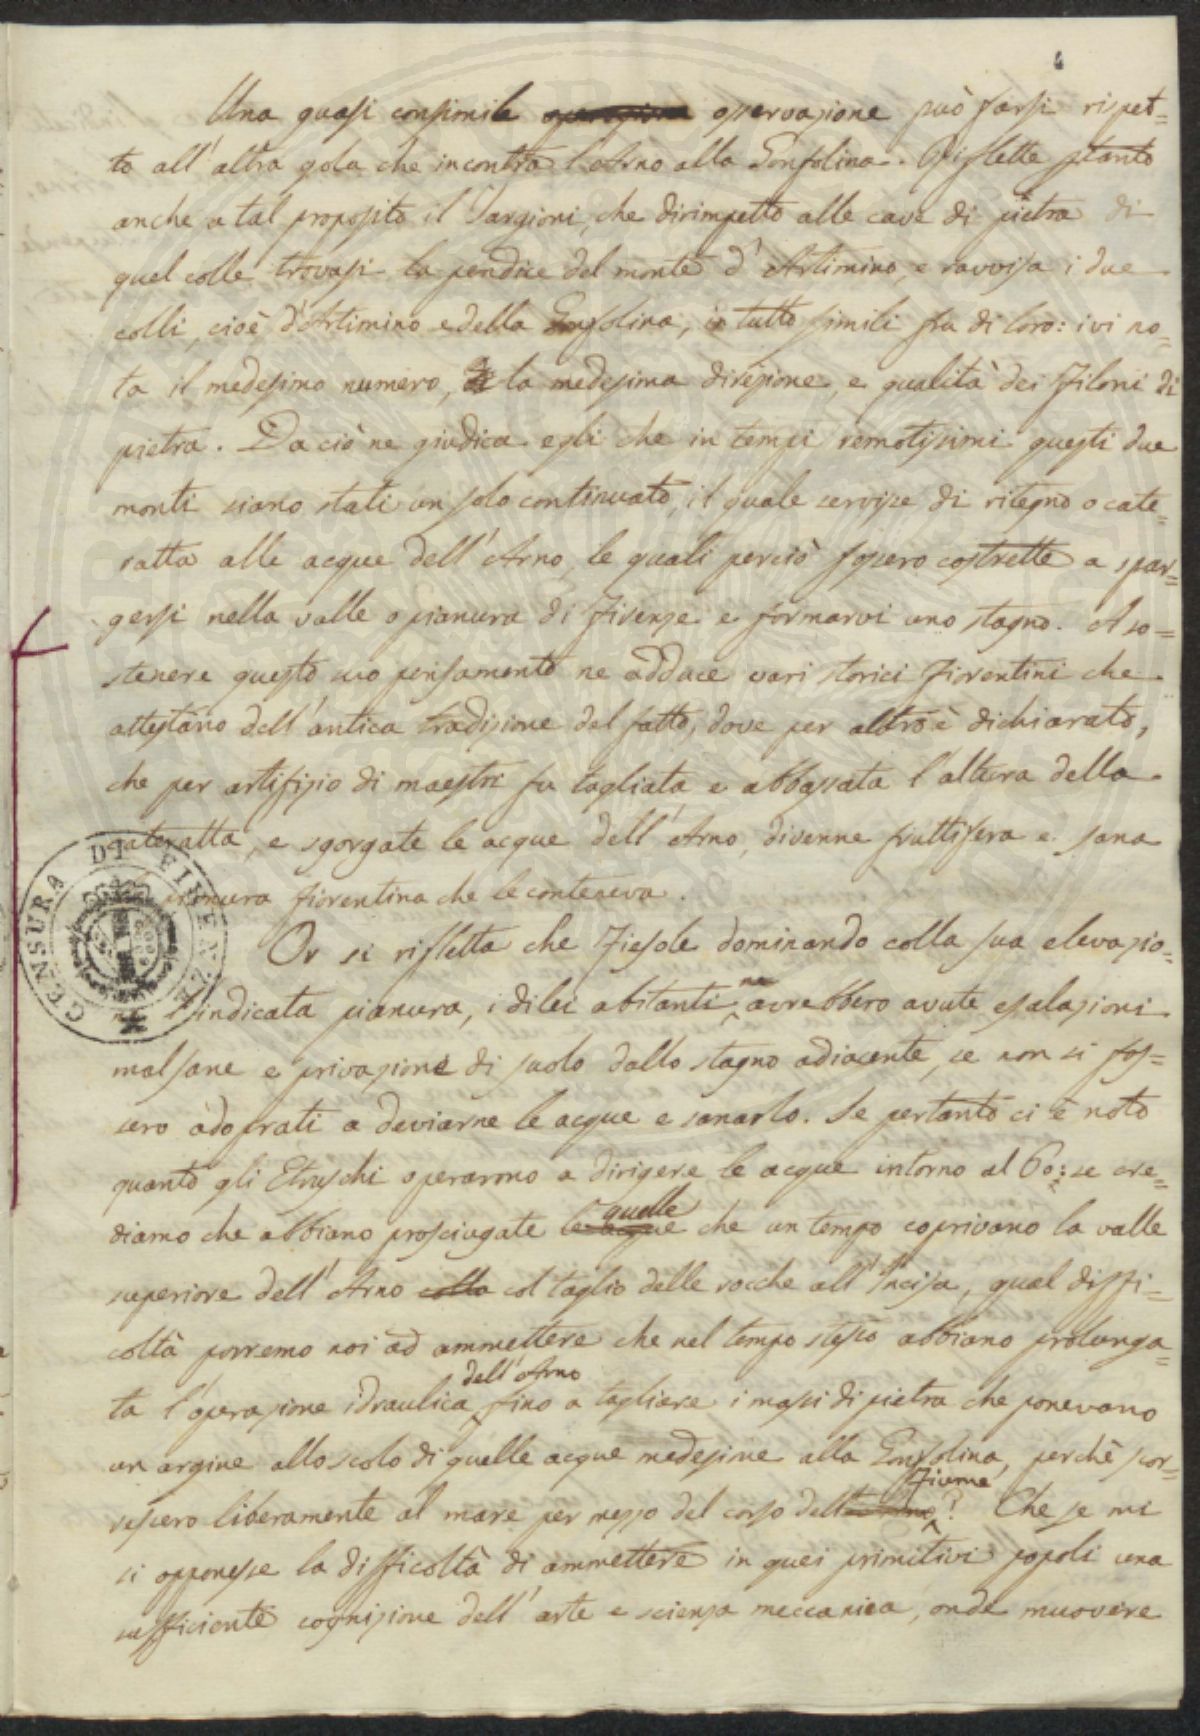 4
Una quasi consimile operazione osservazione può farsi rispet=
to all'altra gola che incontra l'Arno alla Gonfolina. Riflette stanto
anche a tal proposito il Targioni, che dirimpetto alle cave di pietra di
quel colle trovasi la pendice del monte d'Artimino, e ravvisa i due
colli, cioè d'Artimino e della Gonfolina, in tutto simili fra di loro: ivi no=
ta il medesimo numero, la medesima direzione, e qualità dei Filoni di
pietra. Da ciò ne giudica egli che in tempi remotissimi questi due
monti siano stati un solo continuato, il quale servisse di ritegno o cate=
ratta alle acque dell'Arno, le quali perciò fossero costrette a spar=
gersi nella valle o pianura di Firenze e formarvi uno stagno. A so=
stenere questo suo pensamento ne adduce vari storici Fiorentini che
attestano dell'antica tradizione del fatto, dove per altro è dichiarato,
che per artifizio di maestri fu tagliata e abbassata l'altura della
cateratta, e sgorgate le acque dell'Arno, divenne fruttifera e sana
pianura fiorentina che le conteneva.
Or si rifletta che Fiesole dominando colla sua elevazio=
ne l'indicata pianura, i di lei abitanti ne avrebbero avute esalazioni
malsane e privazione di suolo dallo stagno adiacente, se non si fos=
sero adoprati a deviarne le acque e sanarlo. Se pertanto ci è noto
quanto gli Etruschi operarono a dirigere le acque intorno al Po: se cre=
diamo che abbiano prosciugate le acque quelle che un tempo coprivano la valle
superiore dell'Arno colla col taglio delle rocche all'Incisa, qual diffi=
coltà porremo noi ad ammettere che nel tempo stesso abbiano prolunga=
ta l'operazione idraulica dell'Arno fino a tagliare i massi di pietra che ponevano
un argine allo scolo di quelle acque medesime alla Gonfolina, perchè scor=
ressero liberamente al mare per mezzo del corso dell'Arno Fiume? Che se mi
si opponesse la difficoltà di ammettere in quei primitivi popoli una
sufficiente cognizione dell'arte e scienza meccanica, onde muovere
CENSURA DI FIRENZE